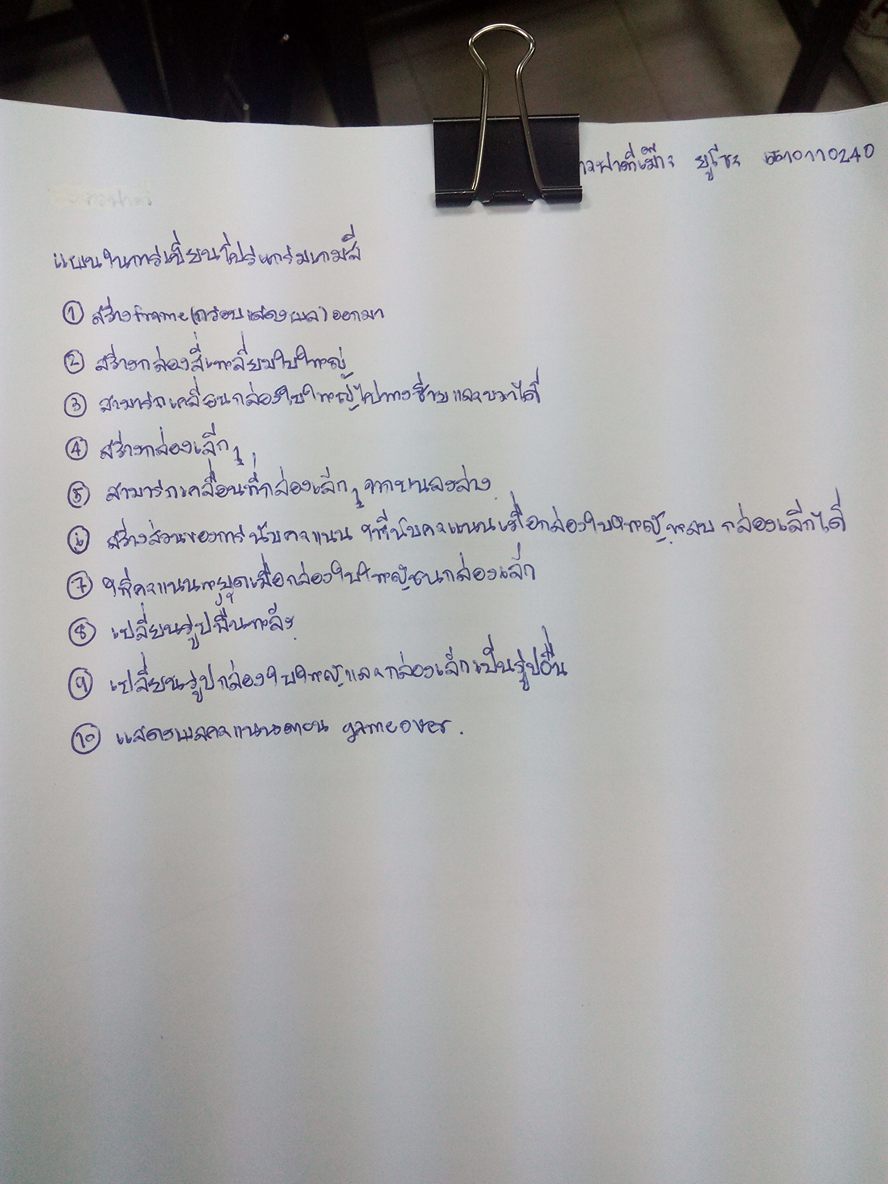 ยูโซะ 5610110240
แผนในการเขียนโปรแกรมเกมส์
① สร้าง frame (กรอบแสดงผล) ออกมา
② สร้างกล่องสี่เหลี่ยมใบใหญ่
③ สามารถเคลื่อนกล่องใบใหญ่ไปทางซ้ายและขวาได้
④ สร้างกล่องเล็กๆ
⑤ สามารถเคลื่อนที่กล่องเล็กๆ จากบนลงล่าง
⑥ สร้างส่วนของการนับคะแนน ให้นับคะแนนเมื่อกล่องใบใหญ่หลบกล่องเล็กได้
⑦ ให้คะแนนหยุดเมื่อกล่องใบใหญ่ชนกล่องเล็ก
⑧ เปลี่ยนรูปพื้นหลัง
⑨ เปลี่ยนรูปกล่องใบใหญ่และกล่องเล็กเป็นรูปอื่น
⑩ แสดงผลคะแนนตอน gameover.